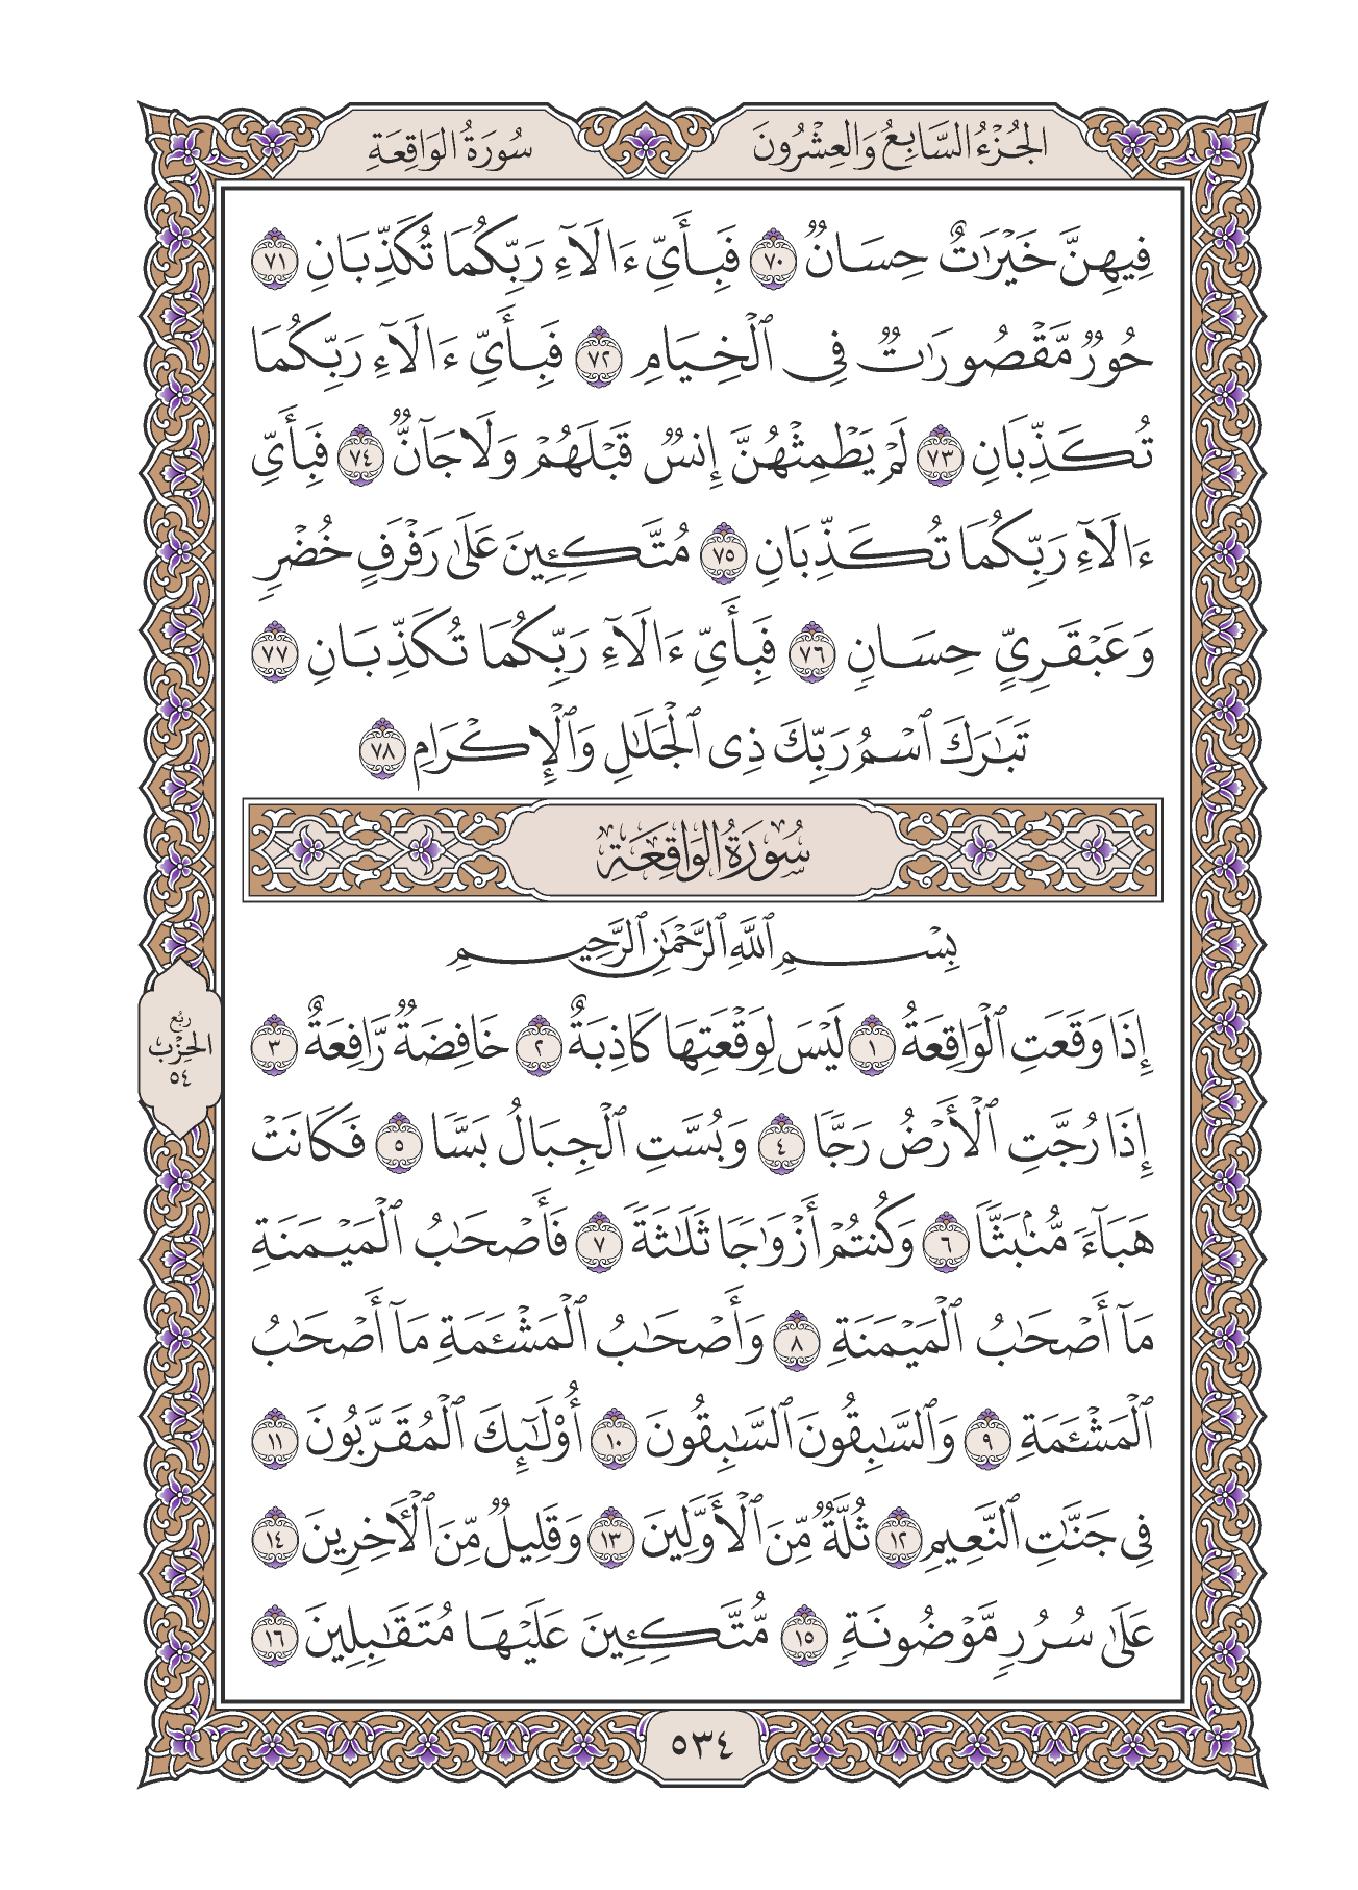 الجُزْءُ السَّابِعُ وَالعِشْرُونَ
سُورَةُ الوَاقِعَةِ
فِيهِنَّ خَيْرَٰتٌ حِسَانٌ ٧٠ فَبِأَىِّ ءَالَآءِ رَبِّكُمَا تُكَذِّبَانِ ٧١
حُورٌ مَّقْصُورَٰتٌ فِى ٱلْخِيَامِ ٧٢ فَبِأَىِّ ءَالَآءِ رَبِّكُمَا
تُكَذِّبَانِ ٧٣ لَمْ يَطْمِثْهُنَّ إِنسٌ قَبْلَهُمْ وَلَا جَآنٌّ ٧٤ فَبِأَىِّ
ءَالَآءِ رَبِّكُمَا تُكَذِّبَانِ ٧٥ مُتَّكِـِٔينَ عَلَىٰ رَفْرَفٍ خُضْرٍ
وَعَبْقَرِىٍّ حِسَانٍ ٧٦ فَبِأَىِّ ءَالَآءِ رَبِّكُمَا تُكَذِّبَانِ ٧٧
تَبَٰرَكَ ٱسْمُ رَبِّكَ ذِى ٱلْجَلَٰلِ وَٱلْإِكْرَامِ ٧٨
سُورَةُ الوَاقِعَةِ
بِسْمِ ٱللَّهِ ٱلرَّحْمَٰنِ ٱلرَّحِيمِ
إِذَا وَقَعَتِ ٱلْوَاقِعَةُ ١ لَيْسَ لِوَقْعَتِهَا كَاذِبَةٌ ٢ خَافِضَةٌ رَّافِعَةٌ ٣
إِذَا رُجَّتِ ٱلْأَرْضُ رَجًّا ٤ وَبُسَّتِ ٱلْجِبَالُ بَسًّا ٥ فَكَانَتْ
هَبَآءً مُّنۢبَثًّا ٦ وَكُنتُمْ أَزْوَٰجًا ثَلَٰثَةً ٧ فَأَصْحَٰبُ ٱلْمَيْمَنَةِ
مَآ أَصْحَٰبُ ٱلْمَيْمَنَةِ ٨ وَأَصْحَٰبُ ٱلْمَشْـَٔمَةِ مَآ أَصْحَٰبُ
ٱلْمَشْـَٔمَةِ ٩ وَٱلسَّٰبِقُونَ ٱلسَّٰبِقُونَ ١٠ أُو۟لَٰٓئِكَ ٱلْمُقَرَّبُونَ ١١
فِى جَنَّٰتِ ٱلنَّعِيمِ ١٢ ثُلَّةٌ مِّنَ ٱلْأَوَّلِينَ ١٣ وَقَلِيلٌ مِّنَ ٱلْـَٔاخِرِينَ ١٤
عَلَىٰ سُرُرٍ مَّوْضُونَةٍ ١٥ مُّتَّكِـِٔينَ عَلَيْهَا مُتَقَٰبِلِينَ ١٦
رُبْع
الحِزْب
٥٤
٥٣٤